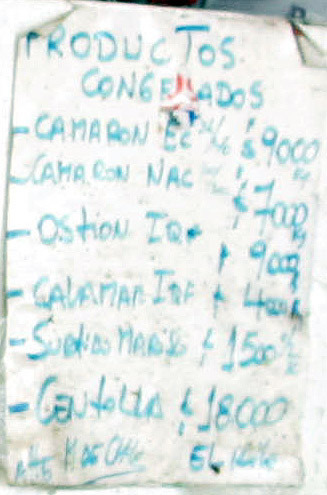 PRODUCTOS
CONGELADOS
- CAMARON EC $ 9000
- CAMARON NAC $ 7000
- OSTION IQF
$ 9000
- CALAMAR IQF $ 4000
- SURTIDO MARIS $ 1500
- CENTOLLA $ 18000
EL KILO